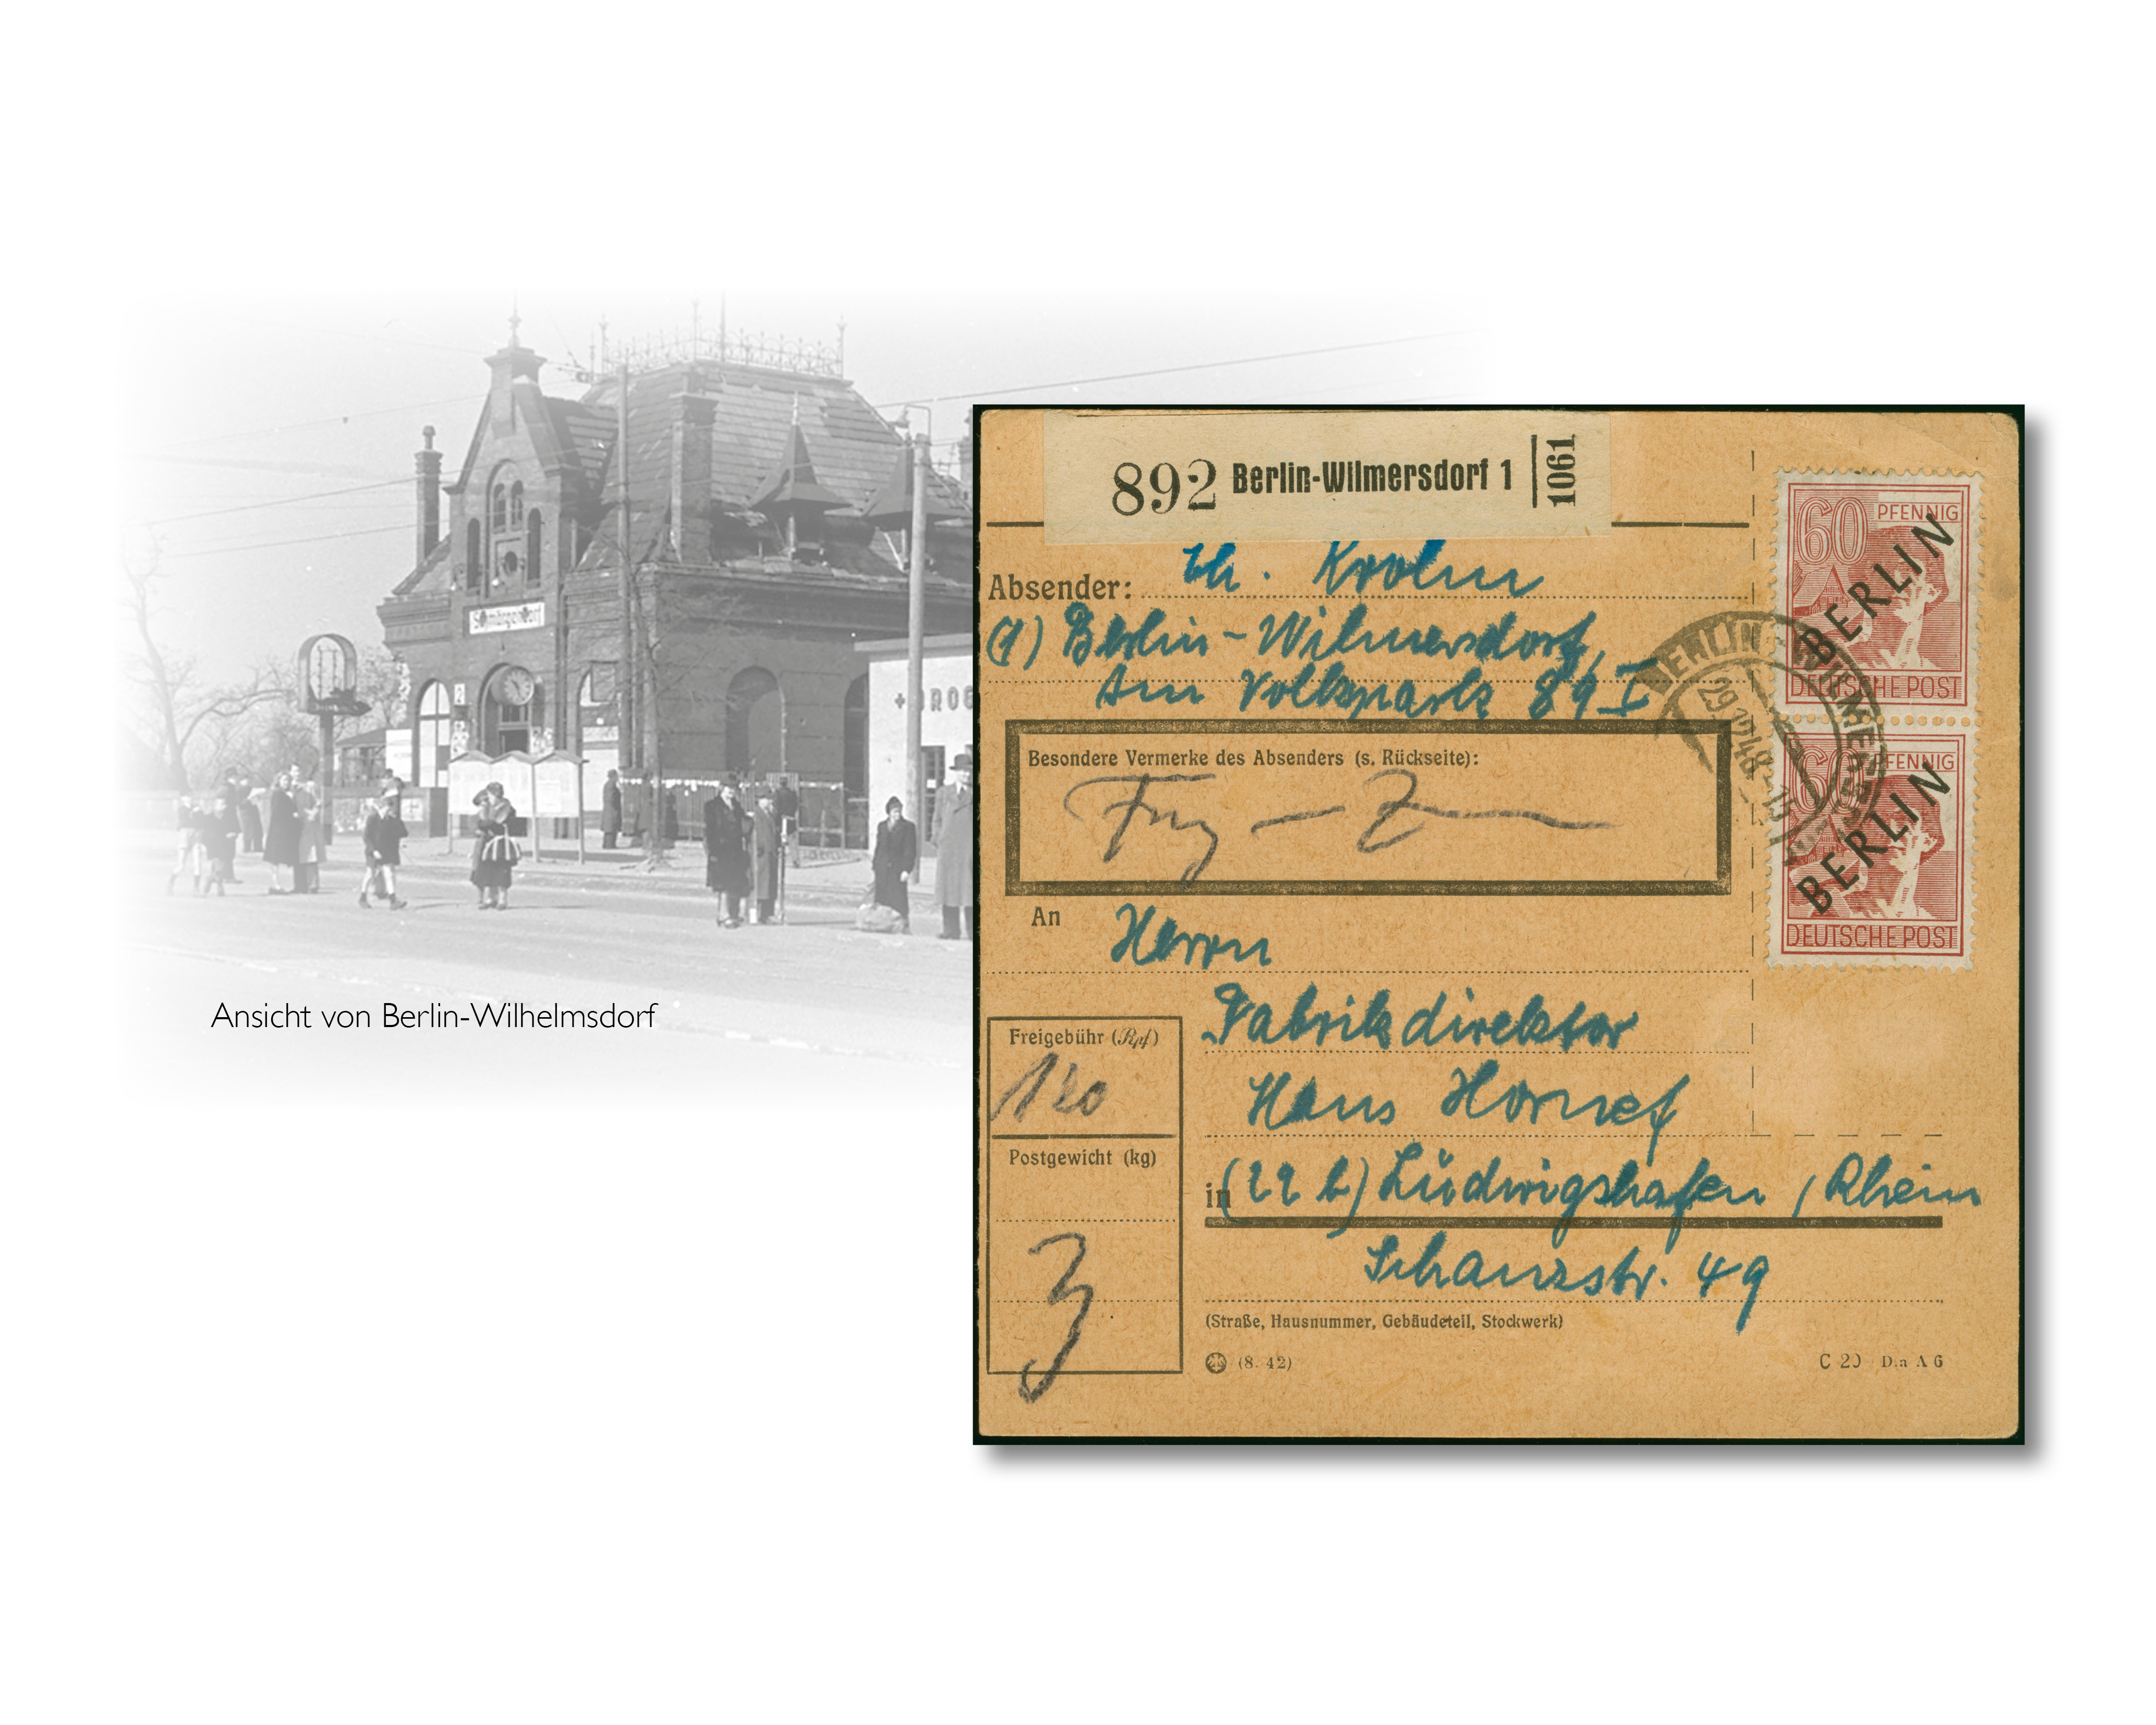 Schmargendorf
DROG
Ansicht von Berlin-Wilhelmsdorf
892 Berlin-Wilmersdorf 1 1061
Absender: Ch. Krohn
(1) Berlin-Wilmersdorf,
Am Volkspark 89 I
Besondere Vermerke des Absenders (s. Rückseite):
An Herrn
Fabrikdirektor
Hans Hornef
in (22 b) Ludwigshafen / Rhein
Schanzstr. 49
(Straße, Hausnummer, Gebäudeteil, Stockwerk)
(8. 42)
C 20 Din A 6
Freigebühr (Rpf)
120
Postgewicht (kg)
3
60 PFENNIG
BERLIN
DEUTSCHE POST
60 PFENNIG
BERLIN
DEUTSCHE POST
BERLIN-WILMERSDORF
29.12.48